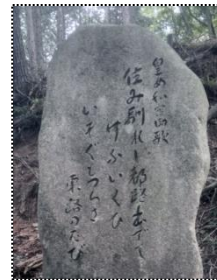 皇女和の宮御歌
住み馴れし都路出でて
けふいくひ
いそぐもつらき
東路のたび